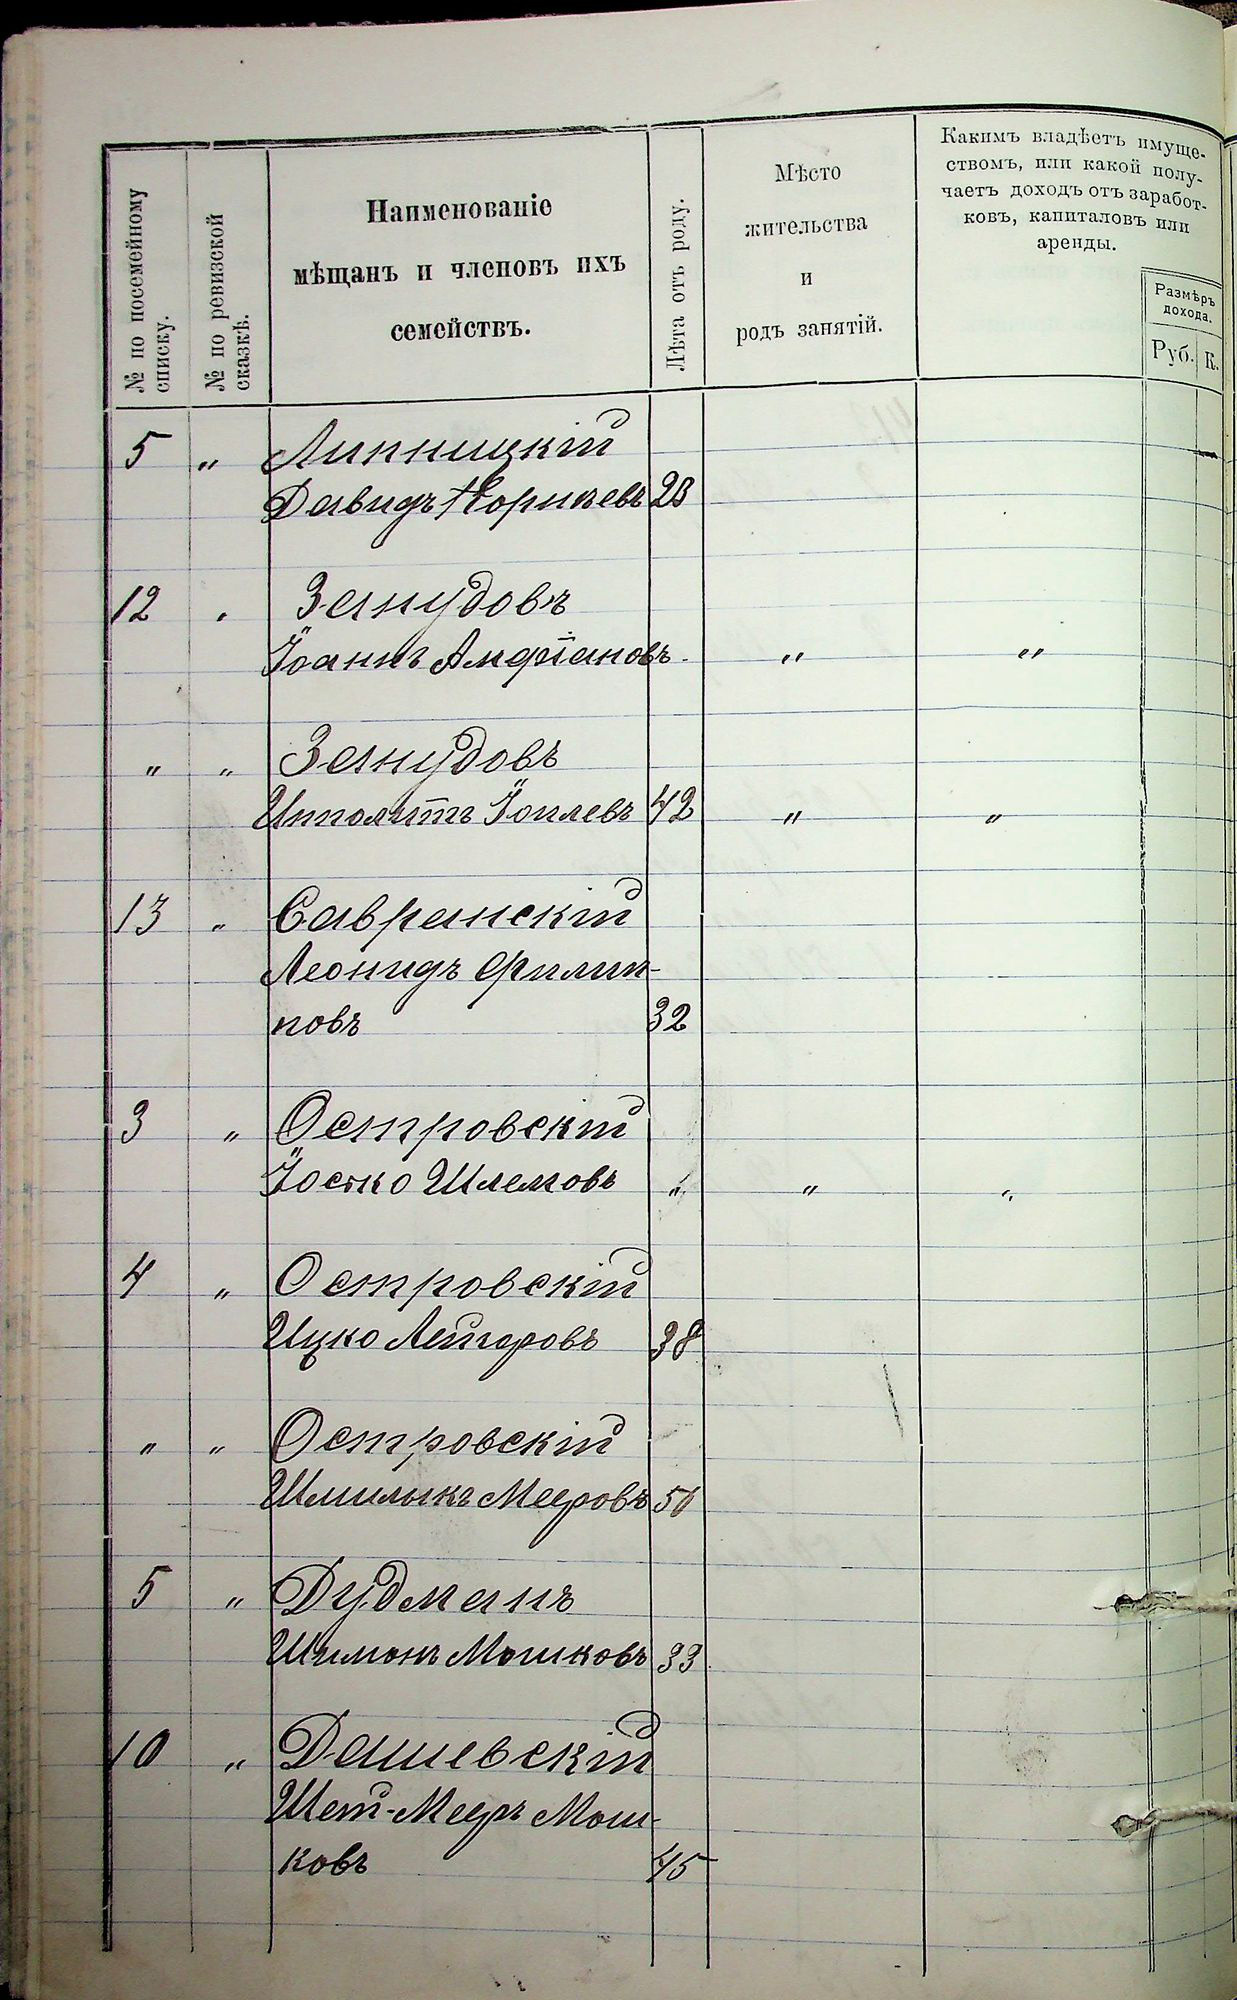 № по посемейному
списку.
№ по ревизской
сказкѣ.
Наименованіе
мѣщанъ и членовъ ихъ
семействъ.
Лѣта отъ роду.
Мѣсто
жительства
и
родъ занятій.
Какимъ владѣетъ имуще-
ствомъ, или какой полу-
чаетъ доходъ отъ заработ-
ковъ, капиталовъ или
аренды.
Размѣръ
дохода.
Руб. К.
5 „ Липницкій
Давидъ 23
12 „ Занудовъ
Іоаннъ Амфіановъ „ „
„ „ Занудовъ
Иполитъ 42 „ „
13 „ Савранскій
Леонидъ Филип-
повъ 32
3 „ Островскій
Іосько Шлемовъ „ „ „
4 „ Островскій
Ицко Лейзеровъ 38
„ „ Островскій
Шмилыкъ Мееровъ
5 „ Дудманъ
Шимонъ Мошковъ 33
10 „ Дашевскій
Меръ Мош-
ковъ 45